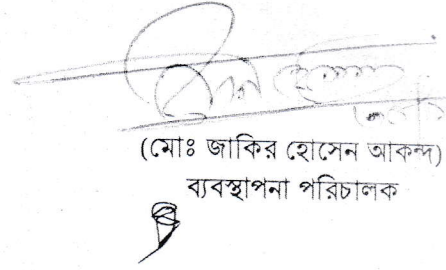 (মোঃ জাকির হোসেন আকন্দ)
ব্যবস্থাপনা পরিচালক